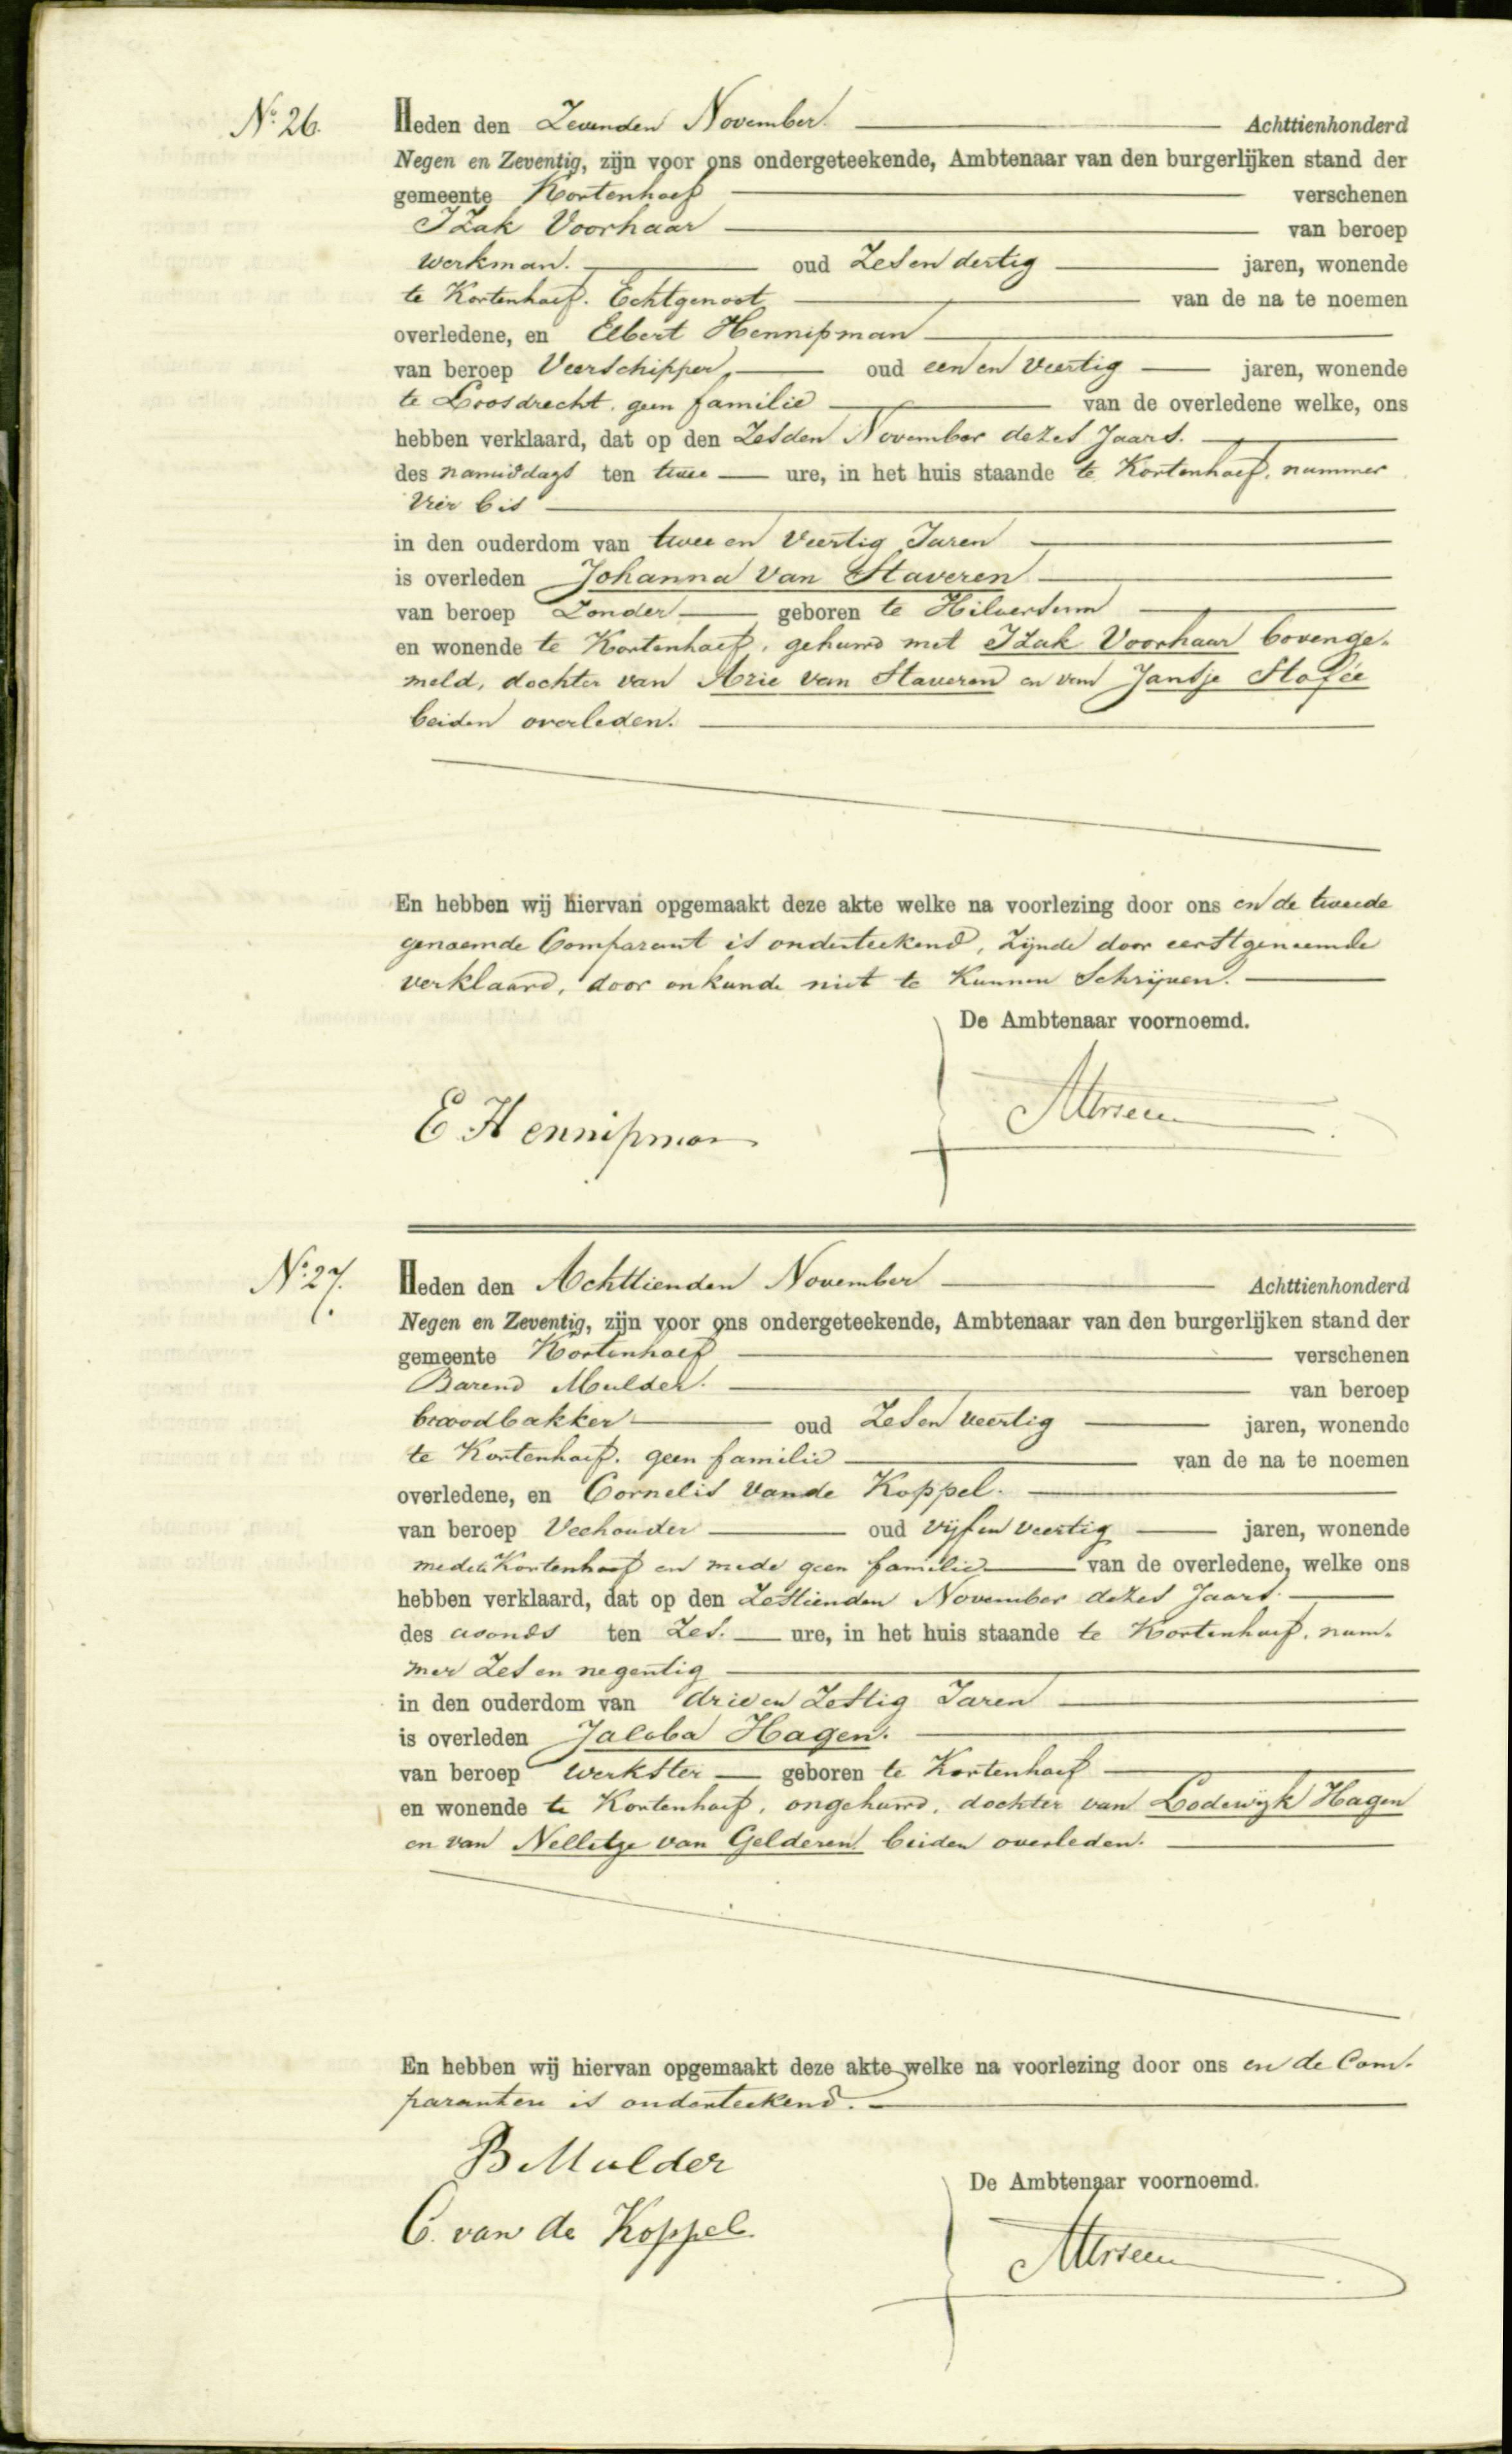 No. 26. Heden den Zevenden November. Achttienhonderd
Negen en Zeventig, zijn voor ons ondergeteekende, Ambtenaar van den burgerlijken stand der
gemeente Kortenhoef verschenen
IZak Voorhaar van beroep
werkman. oud Zesendertig jaren, wonende
te Kortenhoef. Echtgenoot van de na te noemen
overledene, en Elbert Hennipman
van beroep Veerschipper, oud een en Veertig jaren, wonende
te Loosdrecht, geen familie van de overledene welke, ons
hebben verklaard, dat op den Zesden November dezes Jaars.
des namiddags ten twee ure, in het huis staande te Kortenhoef, nummer
Vier bis
in den ouderdom van twee en Veertig Jaren
is overleden Johanna Van Staveren
van beroep Zonder geboren te Hilversum
en wonende te Kortenhoef, gehuwd met IZak Voorhaar bovenge-
meld, dochter van Arie van Staveren en van Jansje
beiden overleden.
En hebben wij hiervan opgemaakt deze akte welke na voorlezing door ons en de tweede
genoemde Comparant is onderteekend, Zijnde door eerstgenoemde
verklaard, door onkunde niet te Kunnen Schrijven.
De Ambtenaar voornoemd.
E Hennipman
No. 27. Heden den Achttienden November Achttienhonderd
Negen en Zeventig, zijn voor ons ondergeteekende, Ambtenaar van den burgerlijken stand der
gemeente Kortenhoef verschenen
Barend Mulder. van beroep
broodbakker oud Zesen veertig jaren, wonende
te Kortenhoef. geen familie van de na te noemen
overledene, en Cornelis Van de Koppel.
van beroep Veehouder oud Vijf en veertig jaren, wonende
mede te Kortenhoef en mede geen familie van de overledene, welke ons
hebben verklaard, dat op den Zestienden November dezes Jaars.
des avonds ten Zes. ure, in het huis staande te Kortenhoef, num-
mer Zes en negentig
in den ouderdom van drie en Zestig Jaren
is overleden Jacoba Hagen.
van beroep werkster geboren te Kortenhoef
en wonende te Kortenhoef, ongehuwd, dochter van Lodewijk Hagen
en van Nelletje van Gelderen beiden overleden.
En hebben wij hiervan opgemaakt deze akte welke na voorlezing door ons en de Com-
paranten is onderteekend.
B Mulder
De Ambtenaar voornoemd.
C. van de Koppel.